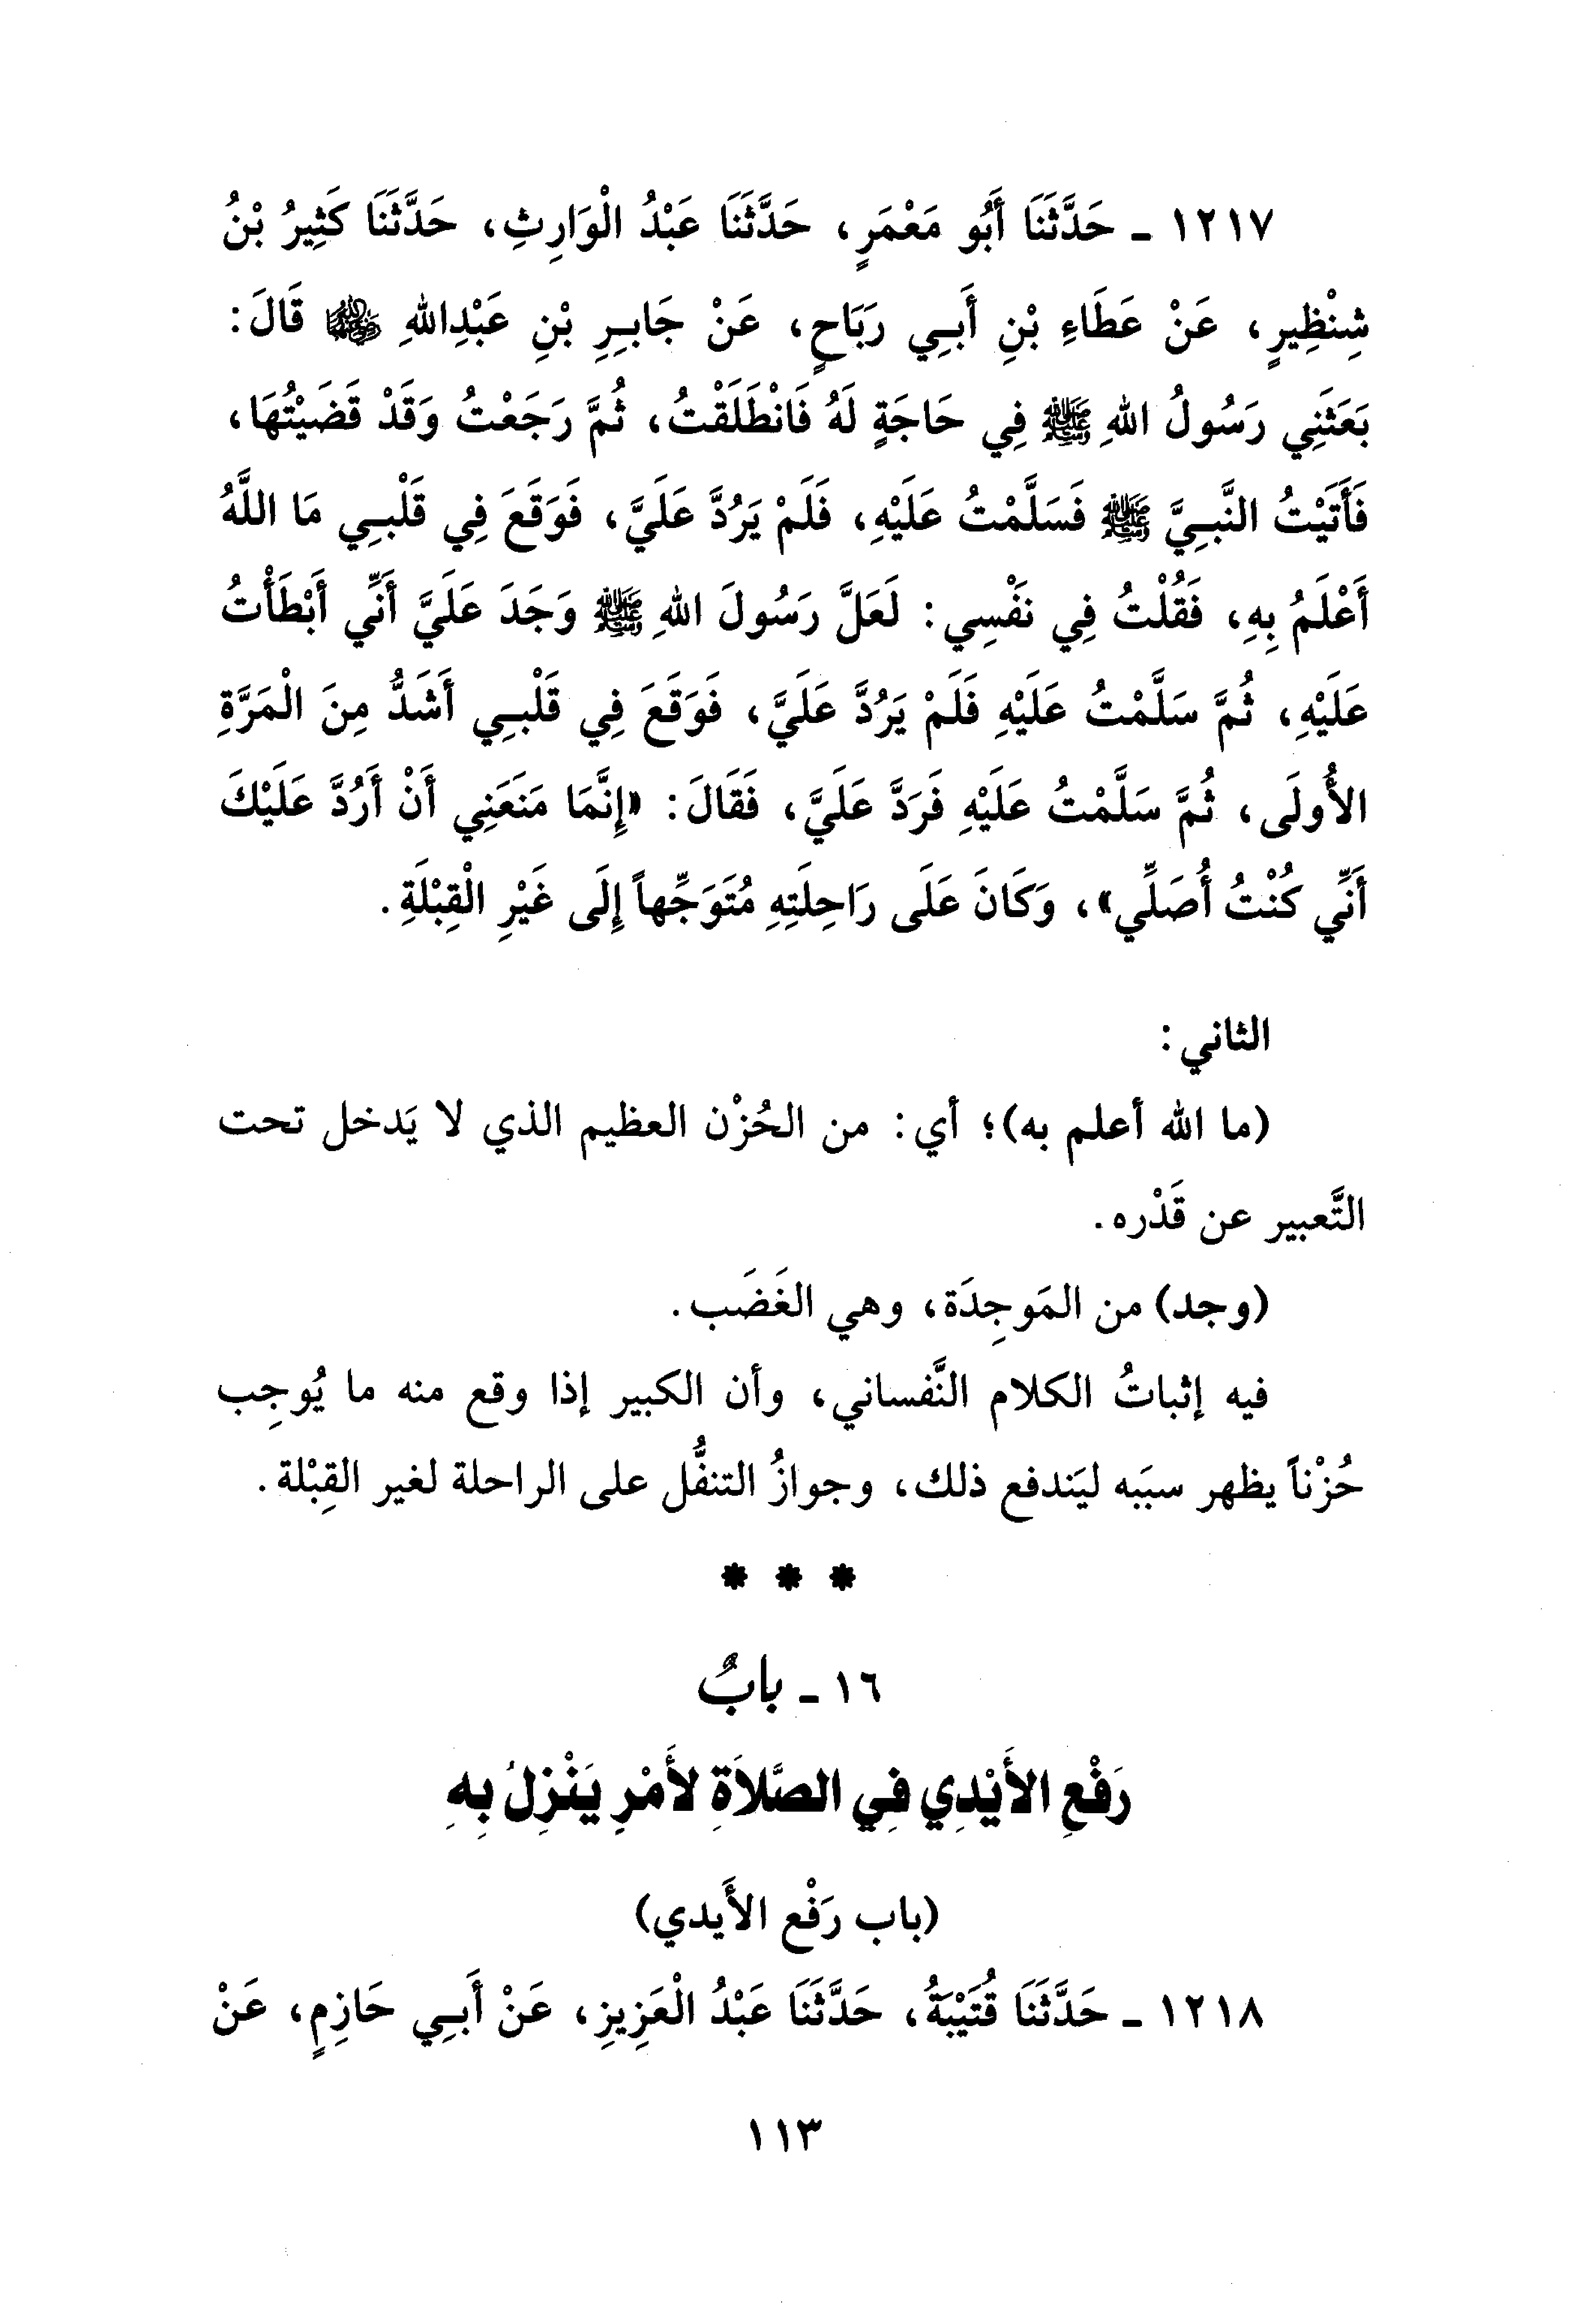 ١٢١٧ - حَدَّثَنَا أَبُو مَعْمَرٍ، حَدَّثَنَا عَبْدُ الْوَارِثِ، حَدَّثَنَا كَثِيرُ بْنُ
شِنْظِيرٍ، عَنْ عَطَاءِ بْنِ أَبِي رَبَاحٍ، عَنْ جَابِرِ بْنِ عَبْدِاللهِ ﵄ قَالَ:
بَعَثَنِي رَسُولُ اللهِ ﷺ فِي حَاجَةٍ لَهُ فَانْطَلَقْتُ، ثُمَّ رَجَعْتُ وَقَدْ قَضَيْتُهَا،
فَأَتَيْتُ النَّبِيَّ ﷺ فَسَلَّمْتُ عَلَيْهِ، فَلَمْ يَرُدَّ عَلَيَّ، فَوَقَعَ فِي قَلْبِي مَا اللَّهُ
أَعْلَمُ بِهِ، فَقُلْتُ فِي نَفْسِي: لَعَلَّ رَسُولَ اللهِ ﷺ وَجَدَ عَلَيَّ أَنِّي أَبْطَأْتُ
عَلَيْهِ، ثُمَّ سَلَّمْتُ عَلَيْهِ فَلَمْ يَرُدَّ عَلَيَّ، فَوَقَعَ فِي قَلْبِي أَشَدُّ مِنَ الْمَرَّةِ
الأُولَى، ثُمَّ سَلَّمْتُ عَلَيْهِ فَرَدَّ عَلَيَّ، فَقَالَ: «إِنَّمَا مَنَعَنِي أَنْ أَرُدَّ عَلَيْكَ
أَنِّي كُنْتُ أُصَلِّي»، وَكَانَ عَلَى رَاحِلَتِهِ مُتَوَجِّهاً إِلَى غَيْرِ الْقِبْلَةِ.
الثاني:
(ما الله أعلم به)؛ أي: من الحُزْن العظيم الذي لا يَدخل تحت
التَّعبير عن قَدْره.
(وجد) من المَوجِدَة، وهي الغَضَب.
فيه إثباتُ الكلام النَّفساني، وأن الكبير إذا وقع منه ما يُوجِب
حُزْناً يظهر سببَه ليَندفع ذلك، وجوازُ التنفُّل على الراحلة لغير القِبْلة.
* * *
١٦ - بابٌ
رَفْعِ الأَيْدِي فِي الصَّلاَةِ لأَمْرٍ يَنْزِلُ بِهِ
(باب رَفْع الأَيدي)
١٢١٨ - حَدَّثَنَا قُتَيْبَةُ، حَدَّثَنَا عَبْدُ الْعَزِيزِ، عَنْ أَبِي حَازِمٍ، عَنْ
١١٣